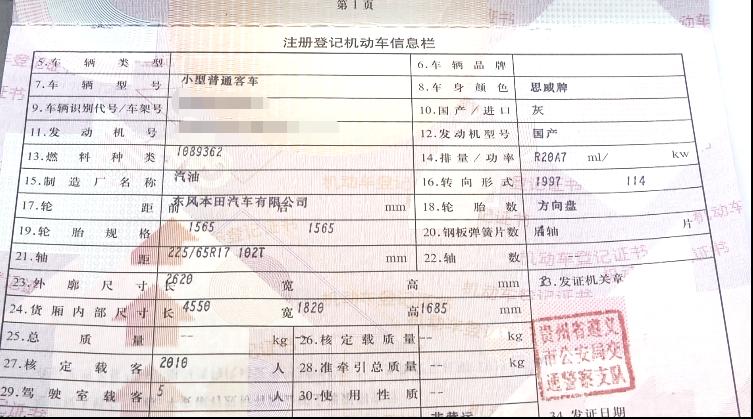 第1页
注册登记机动车信息栏
5.车辆类型 6.车辆品牌
小型普通客车 思威牌
7.车辆型号 8.车身颜色
9.车辆识别代号/车架号 10.国产/进口 灰
11.发动机号 12.发动机型号 国产
1089362
13.燃料种类 14.排量/功率 R20A7 ml/ kw
汽油
15.制造厂名称 16.转向形式 1997 114
东风本田汽车有限公司
17.轮距 前 后 mm 18.轮胎数 方向盘
1565 1565
19.轮胎规格 20.钢板弹簧片数 片
225/65R17 102T
21.轴距 mm 22.轴数 --
2620
23.外廓尺寸 长 宽 高 mm 33.发证机关章
4550 1820 1685
24.货厢内部尺寸 长 宽 高 mm
25.总质量 -- kg 26.核定载质量 -- kg
27.核定载客 2010 人 28.准牵引总质量 -- kg
29.驾驶室载客 5 人 30.使用性质 --
贵州省遵义
市公安局交
通警察支队
34.发证日期